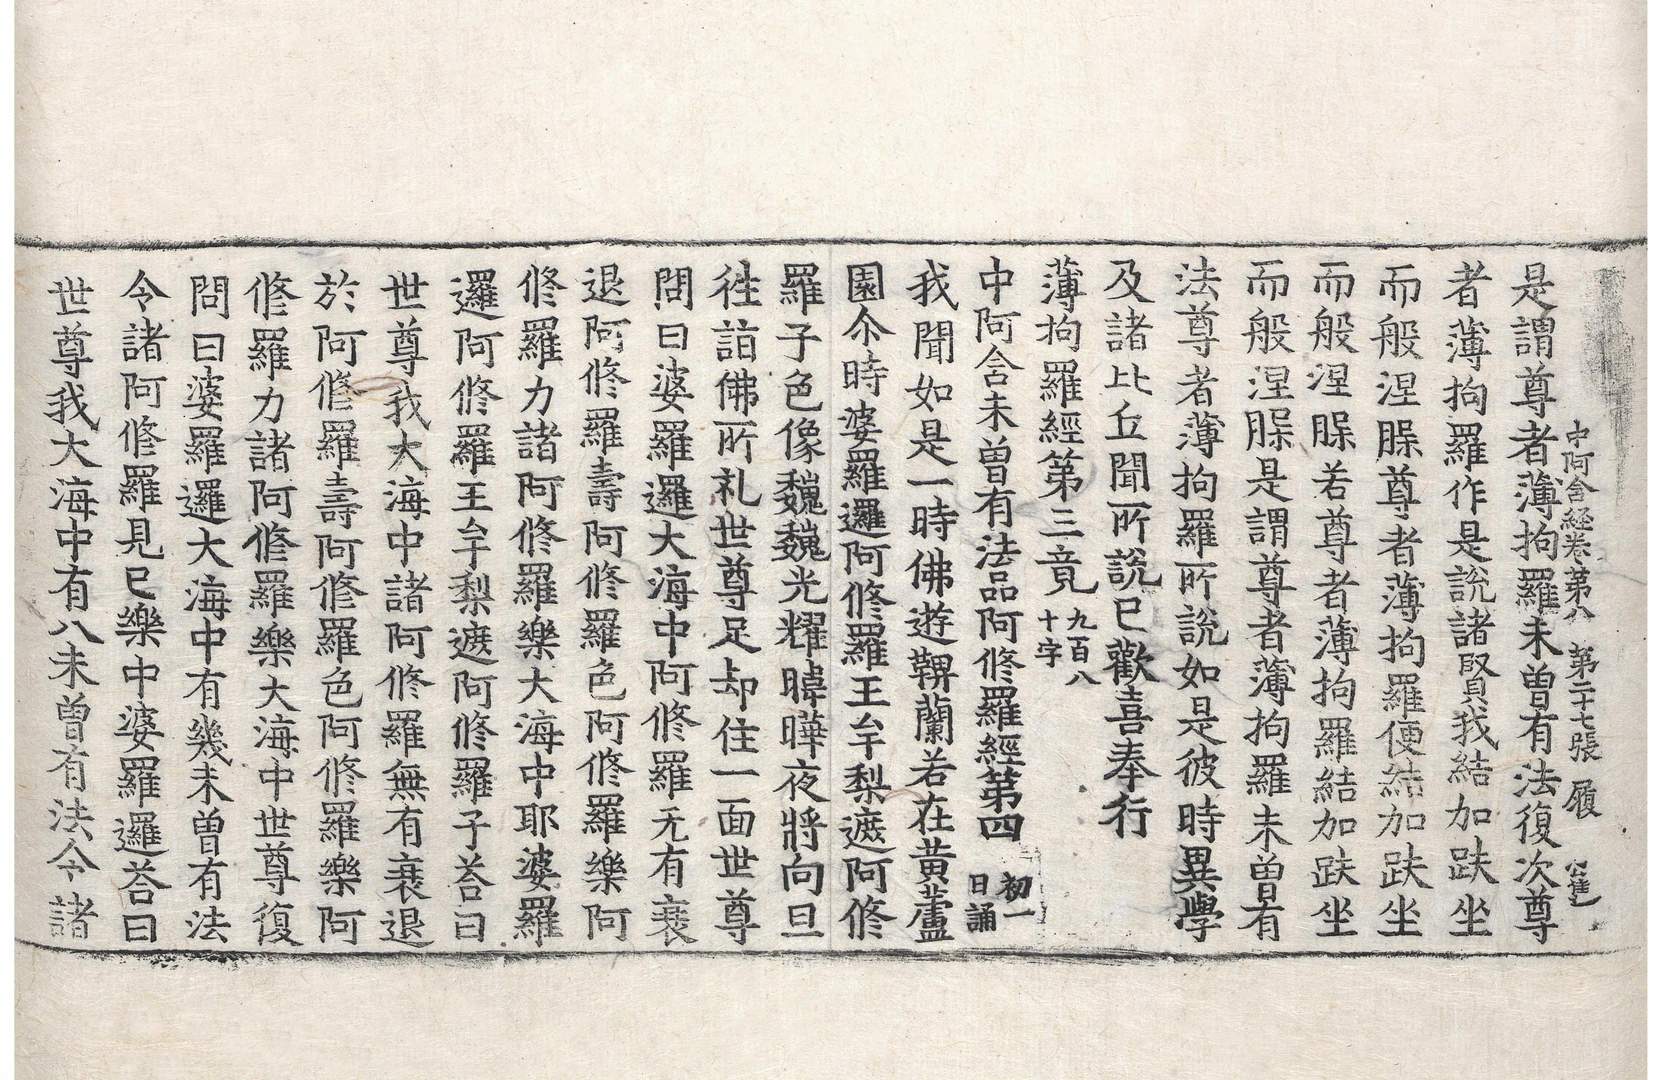 中阿含経卷第八　第二十七張　履
是謂尊者薄拘羅未曽有法復次尊
者薄拘羅作是說諸賢我結加趺坐
而般涅槃尊者薄拘羅便結加趺坐
而般涅槃若尊者薄拘羅結加趺坐
而般涅槃是謂尊者薄拘羅未曽有
法尊者薄拘羅所說如是彼時異學
及諸比丘聞所說已歡喜奉行
薄拘羅經第三竟 九百八十字
中阿含未曽有法品阿修羅經第四 初一日誦
我聞如是一時佛遊鞞蘭若在黄蘆
園尒時婆羅邏阿修羅王牟梨遮阿修
羅子色像巍巍光耀暐曄夜將向旦
往詣佛所礼世尊足却住一面世尊
問曰婆羅邏大海中阿修羅无有衰
退阿修羅壽阿修羅色阿修羅樂阿
修羅力諸阿修羅樂大海中耶婆羅
邏阿修羅王牟梨遮阿修羅子荅曰
世尊我大海中諸阿修羅無有衰退
於阿修羅壽阿修羅色阿修羅樂阿
修羅力諸阿修羅樂大海中世尊復
問曰婆羅邏大海中有幾未曽有法
令諸阿修羅見已樂中婆羅邏荅曰
世尊我大海中有八未曽有法令諸